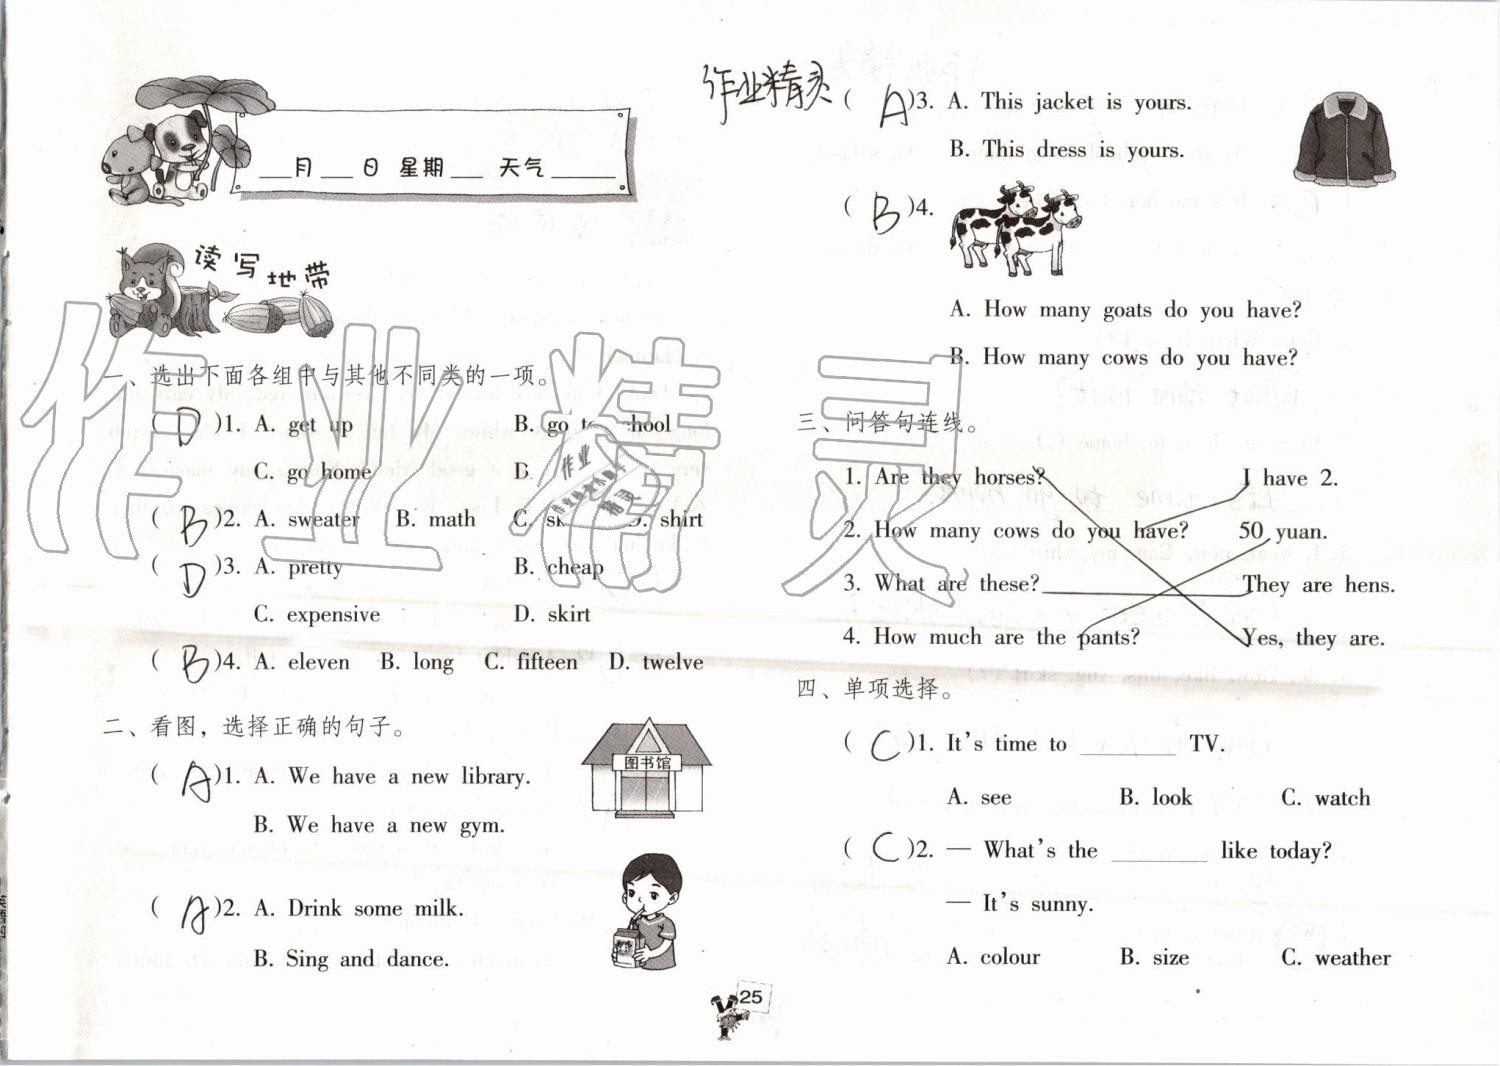 ___月___日 星期___ 天气______
读写地带
一、选出下面各组中与其他不同类的一项。
( D )1. A. get up B. go to school
C. go home D.
( B )2. A. sweater B. math C. D. shirt
( D )3. A. pretty B. cheap
C. expensive D. skirt
( B )4. A. eleven B. long C. fifteen D. twelve
二、看图，选择正确的句子。
( A )1. A. We have a new library.
B. We have a new gym.
图书馆
( A )2. A. Drink some milk.
B. Sing and dance.
作业精灵
( A )3. A. This jacket is yours.
B. This dress is yours.
( B )4.
A. How many goats do you have?
B. How many cows do you have?
三、问答句连线。
1. Are they horses? I have 2.
2. How many cows do you have? 50 yuan.
3. What are these? They are hens.
4. How much are the pants? Yes, they are.
四、单项选择。
( C )1. It's time to ________ TV.
A. see B. look C. watch
( C )2. — What's the ________ like today?
— It's sunny.
A. colour B. size C. weather
25
作业精灵